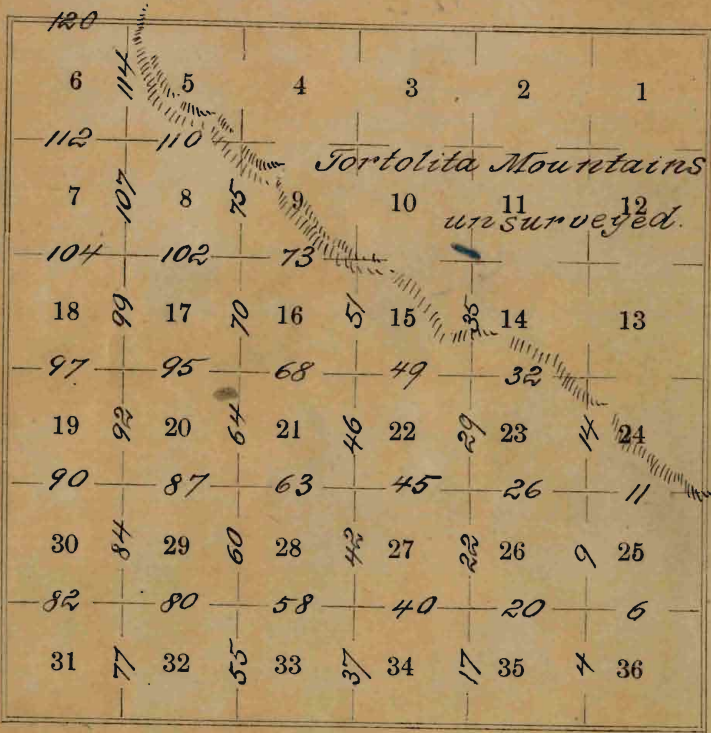 120
6 114 5 4 3 2 1
112 110
Tortolita Mountains
7 107 8 75 9 10 11 12
unsurveyed.
104 102 73
18 99 17 70 16 51 15 35 14 13
97 95 68 49 32
19 92 20 64 21 46 22 29 23 14 24
90 87 63 45 26 11
30 84 29 60 28 42 27 22 26 9 25
82 80 58 40 20 6
31 77 32 55 33 37 34 17 35 4 36